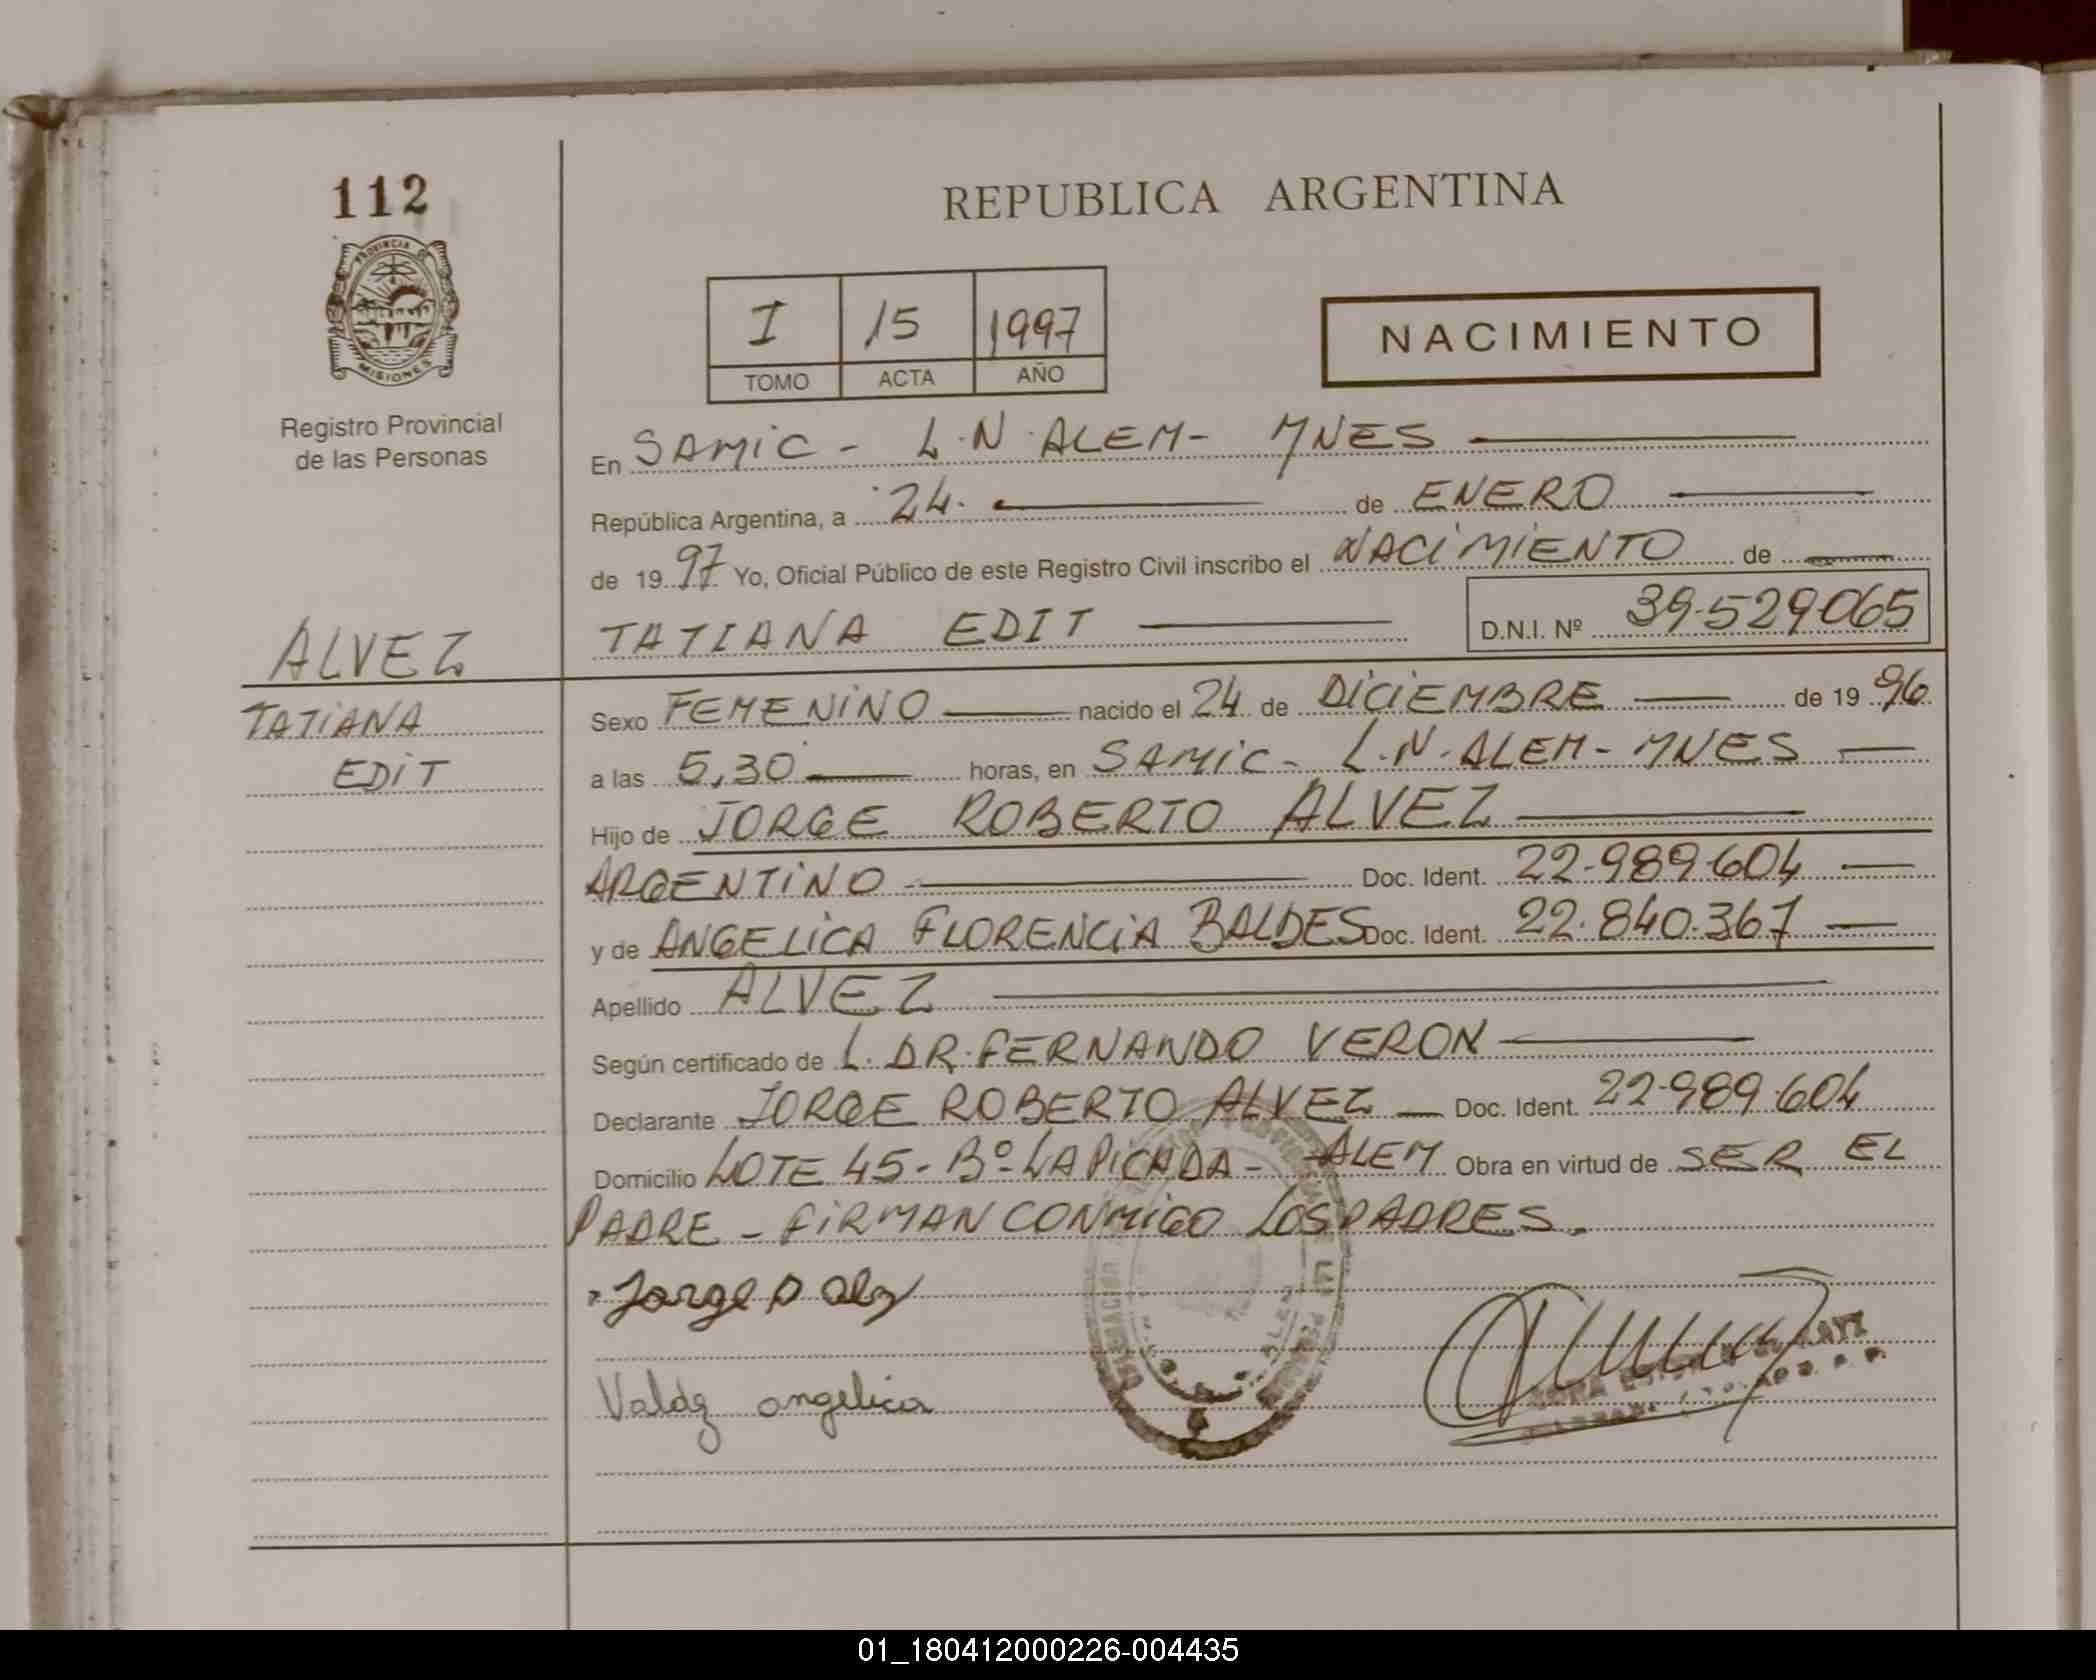 112
REPUBLICA ARGENTINA
PROVINCIA DE
MISIONES
I 15 1997
TOMO ACTA AÑO
NACIMIENTO
Registro Provincial
de las Personas
En SAMIC - L.N. ALEM - MNES
República Argentina, a 24. de ENERO
de 19 97 Yo, Oficial Público de este Registro Civil inscribo el NACIMIENTO de
TATIANA EDIT D.N.I. Nº 39.529.065
ALVEZ
TATIANA
EDIT
Sexo FEMENINO nacido el 24 de DICIEMBRE de 19 96
a las 5,30 horas, en SAMIC - L.N. ALEM - MNES
Hijo de JORGE ROBERTO ALVEZ
ARGENTINO Doc. Ident. 22.989.604
y de ANGELICA FLORENCIA BALDES Doc. Ident. 22.840.367
Apellido ALVEZ
Según certificado de L. DR. FERNANDO VERON
Declarante JORGE ROBERTO ALVEZ Doc. Ident. 22.989.604
Domicilio LOTE 45 - Bº LA PICADA - ALEM Obra en virtud de SER EL
PADRE - FIRMAN CONMIGO LOS PADRES.
Jorge
Valdez angelica
01_180412000226-004435